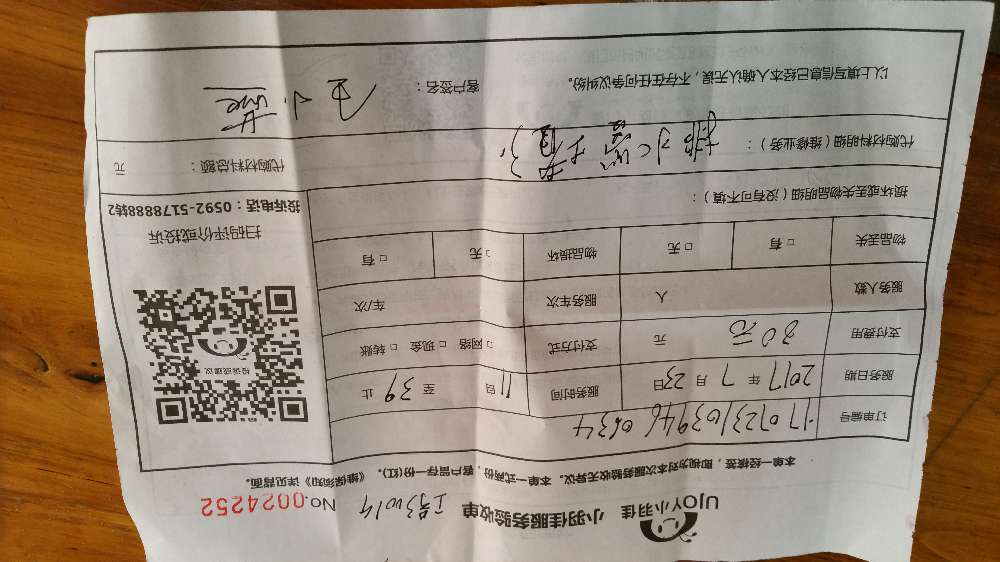 UJOY小羽佳 小羽佳服务验收单 No.0024252
本单一经核签，即视为对本次服务验收无异议。本单一式两份，客户留存一份(红)。《维保须知》详见背面。
订单编号
服务日期 2017 年 7 月 23 日 服务时间 11 自 至 39 止
支付费用 80元 元 支付方式 □ 网络 □ 现金 □ 转账
服务人数 人 服务车次 车/次
物品丢失 □ 有 □ 无 物品损坏 □ 无 □ 有
损坏或丢失物品明细（没有可不填）：
代购材料明细（维修业务）：
代购材料总额： 元
以上填写信息已经本人确认无误，不存在任何争议纠纷。
客户签名：
投诉或建议
扫码评价或投诉
投诉电话：0592-5178888转2